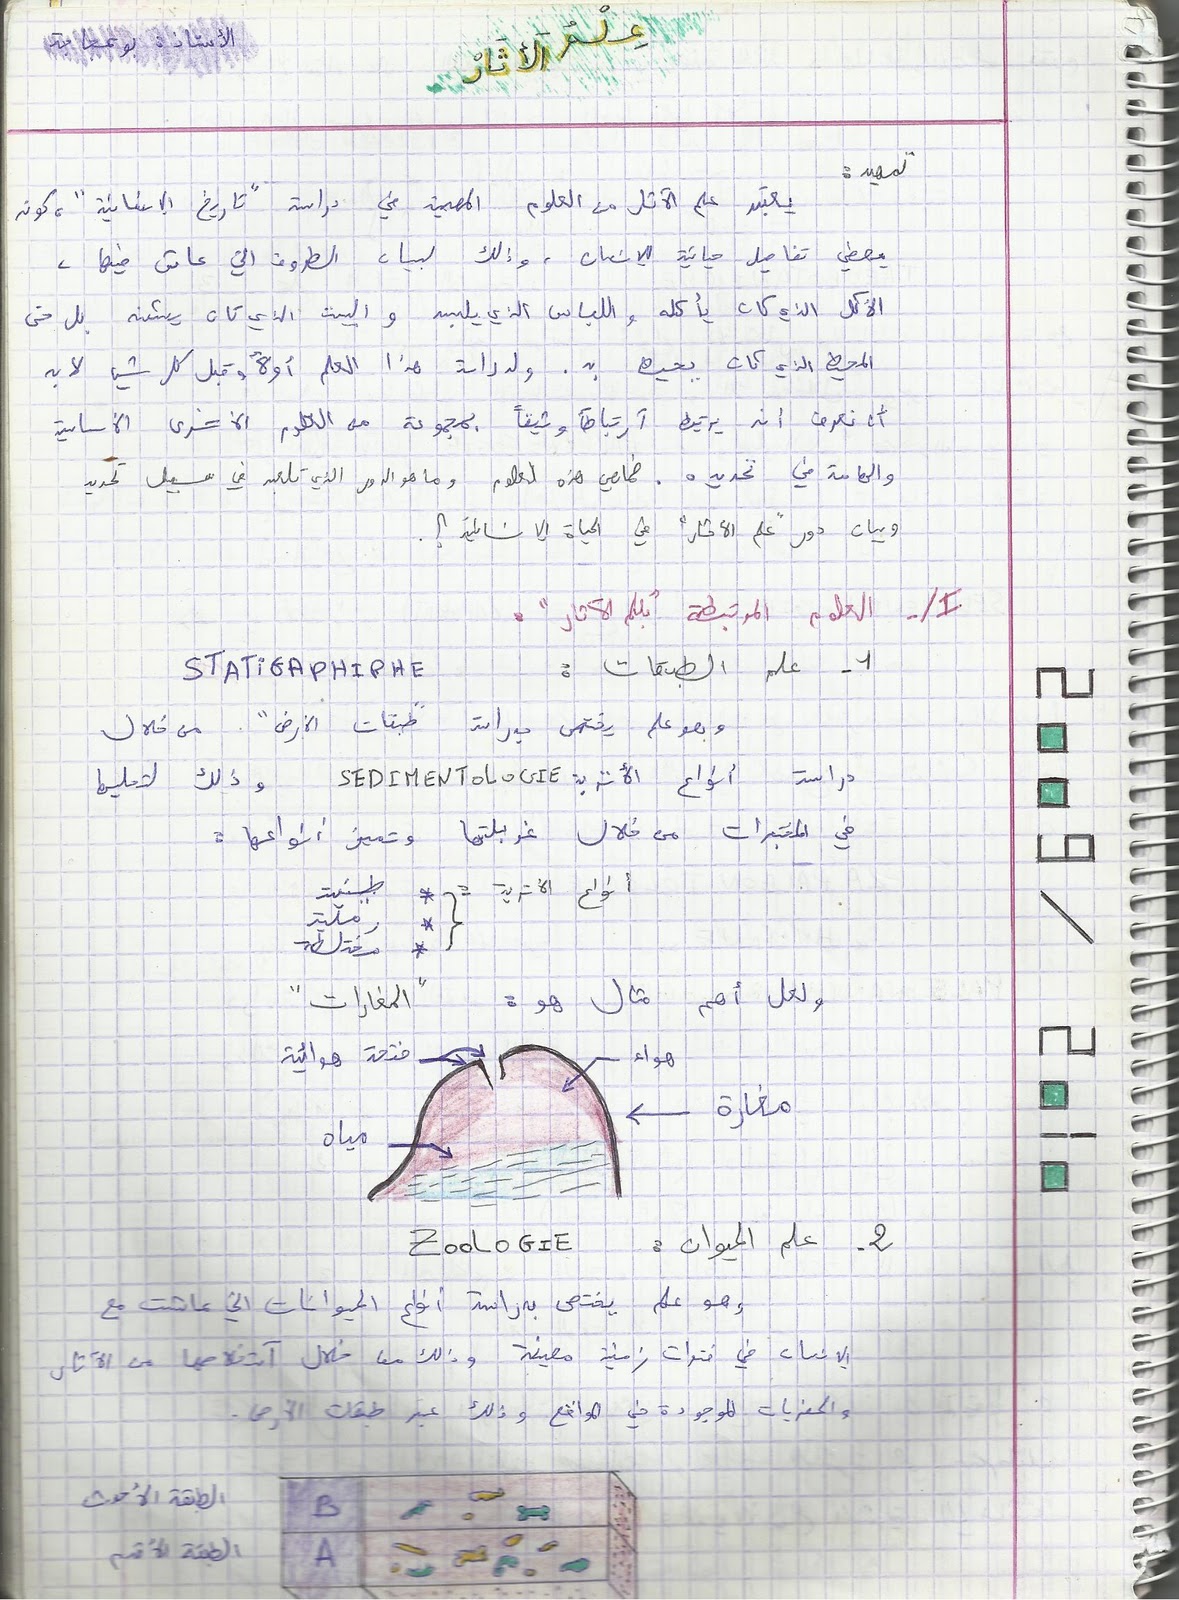 علْمُ الأثار
الأستاذة بوعجامة
تمهيد:
يعتبر علم الآثار من العلوم المهمة في دراسة "تاريخ الإنسانية"، كونه
يعطي تفاصيل حياتية للإنسان، وذلك لبيان الظروف التي عاش فيها،
الأكل الذي كان يأكله واللباس الذي يلبسه و البيت الذي كان يسكنه بل حتى
المحيط الذي كان يحيط به. ولدراسة هذا العلم أولاً وقبل كل شيء لابد
أن نعرف أنه يرتبط آرتباطاً وثيقاً بمجموعة من العلوم الأخرى الأساسية
والهامة في تحديده. فماهي هذه العلوم وما هو الدور الذي تلعبه في سبيل تحديد
وبيان دور "علم الآثار" في الحياة الإنسانية؟!.
I/- العلوم المرتبطة "بعلم الآثار":
1- علم الطبقات: STATiGRAPHiPHE
وهو علم يختص بدراسة "طبقات الأرض". من خلال
دراسة أنواع الأتربة SEDIMENTOLOGIE وذلك لتحليلها
في المختبرات من خلال غربلتها وتمييز أنواعها:
أنواع الأتربة: * طينية
* رملية
* مختلطة
ولعل أهم مثال هو: "المغارات"
فتحة هوائية
هواء
مغارة
مياه
2- علم الحيوان: ZOOLOGIE
وهو علم يختص بدراسة أنواع الحيوانات التي عاشت مع
الإنسان في فترات زمنية معينة وذلك من خلال آستخلاصها من الآثار
والحفريات الموجودة في المواقع وذلك عبر طبقات الأرض.
الطبقة الأحدث B
الطبقة الأقدم A